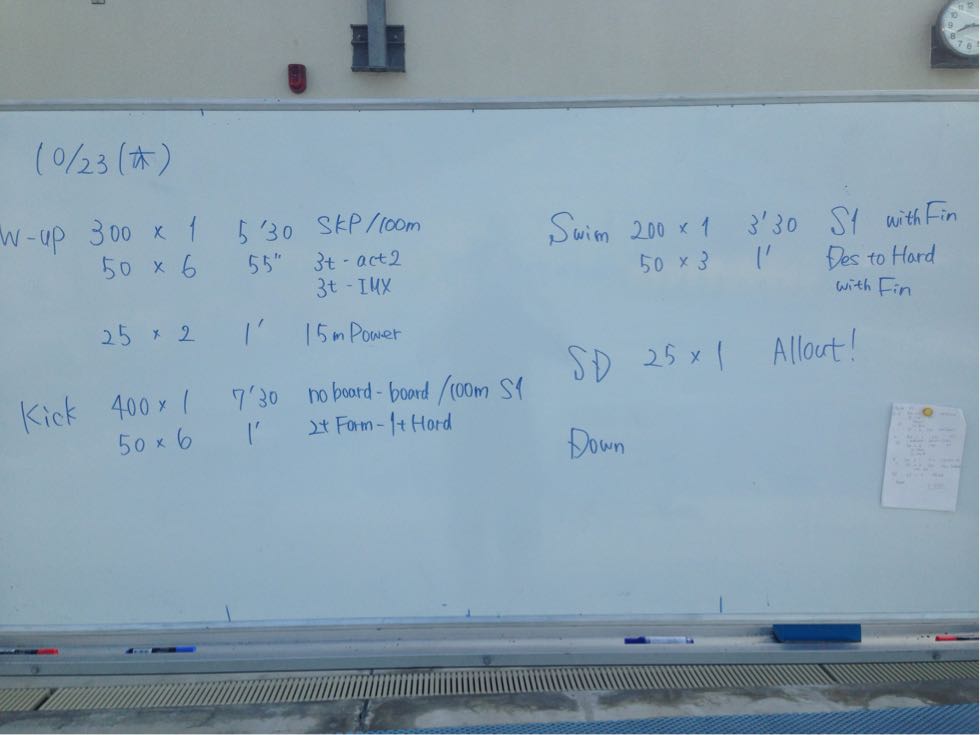 10/23(木)
W-up 300 × 1 5'30 SKP/100m
50 × 6 55" 3t-act2
3t-IMX
25 × 2 1' 15m Power
Kick 400 × 1 7'30 no board-board/100m S1
50 × 6 1' 2t Form-1t Hard
Swim 200 × 1 3'30 S1 with Fin
50 × 3 1' Des to Hard
with Fin
SD 25 × 1 Allout!
Down